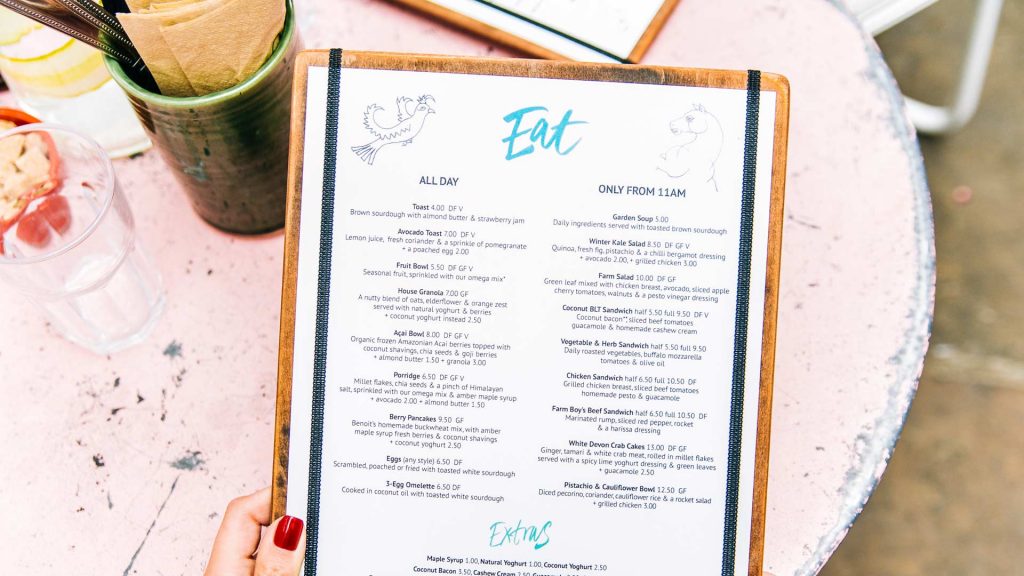 Eat
ALL DAY
Toast 4.00 DF V
Brown sourdough with almond butter & strawberry jam
Avocado Toast 7.00 DF V
Lemon juice, fresh coriander & a sprinkle of pomegranate
+ a poached egg 2.00
Fruit Bowl 5.50 DF GF V
Seasonal fruit, sprinkled with our omega mix*
House Granola 7.00 GF
A nutty blend of oats, elderflower & orange zest
served with natural yoghurt & berries
+ coconut yoghurt instead 2.50
Açai Bowl 8.00 DF GF V
Organic frozen Amazonian Acai berries topped with
coconut shavings, chia seeds & goji berries
+ almond butter 1.50 + granola 3.00
Porridge 6.50 DF GF V
Millet flakes, chia seeds & a pinch of Himalayan
salt, sprinkled with our omega mix & amber maple syrup
+ avocado 2.00 + almond butter 1.50
Berry Pancakes 9.50 GF
Benoit's homemade buckwheat mix, with amber
maple syrup fresh berries & coconut shavings
+ coconut yoghurt 2.50
Eggs (any style) 6.50 DF
Scrambled, poached or fried with toasted white sourdough
3-Egg Omelette 6.50 DF
Cooked in coconut oil with toasted white sourdough
ONLY FROM 11AM
Garden Soup 5.00
Daily ingredients served with toasted brown sourdough
Winter Kale Salad 8.50 DF GF V
Quinoa, fresh fig, pistachio & a chilli bergamot dressing
+ avocado 2.00, + grilled chicken 3.00
Farm Salad 10.00 DF GF
Green leaf mixed with chicken breast, avocado, sliced apple
cherry tomatoes, walnuts & a pesto vinegar dressing
Coconut BLT Sandwich half 5.50 full 9.50 DF V
Coconut bacon**, sliced beef tomatoes
guacamole & homemade cashew cream
Vegetable & Herb Sandwich half 5.50 full 9.95
Daily roasted vegetables, buffalo mozzarella
tomatoes & olive oil
Chicken Sandwich half 6.50 full 10.50 DF
Grilled chicken breast, sliced beef tomatoes
homemade pesto & guacamole
Farm Boy's Beef Sandwich half 6.50 full 10.50 DF
Marinated rump, sliced red pepper, rocket
& a harissa dressing
White Devon Crab Cakes 13.00 DF GF
Ginger, tamari & white crab meat, rolled in millet flakes
served with a spicy lime yoghurt dressing & green leaves
+ guacamole 2.50
Pistachio & Cauliflower Bowl 12.50 GF
Diced pecorino, coriander, cauliflower rice & a rocket salad
+ grilled chicken 3.00
Extras
Maple Syrup 1.00, Natural Yoghurt 1.00, Coconut Yoghurt 2.50
Coconut Bacon 3.50, Cashew Cream